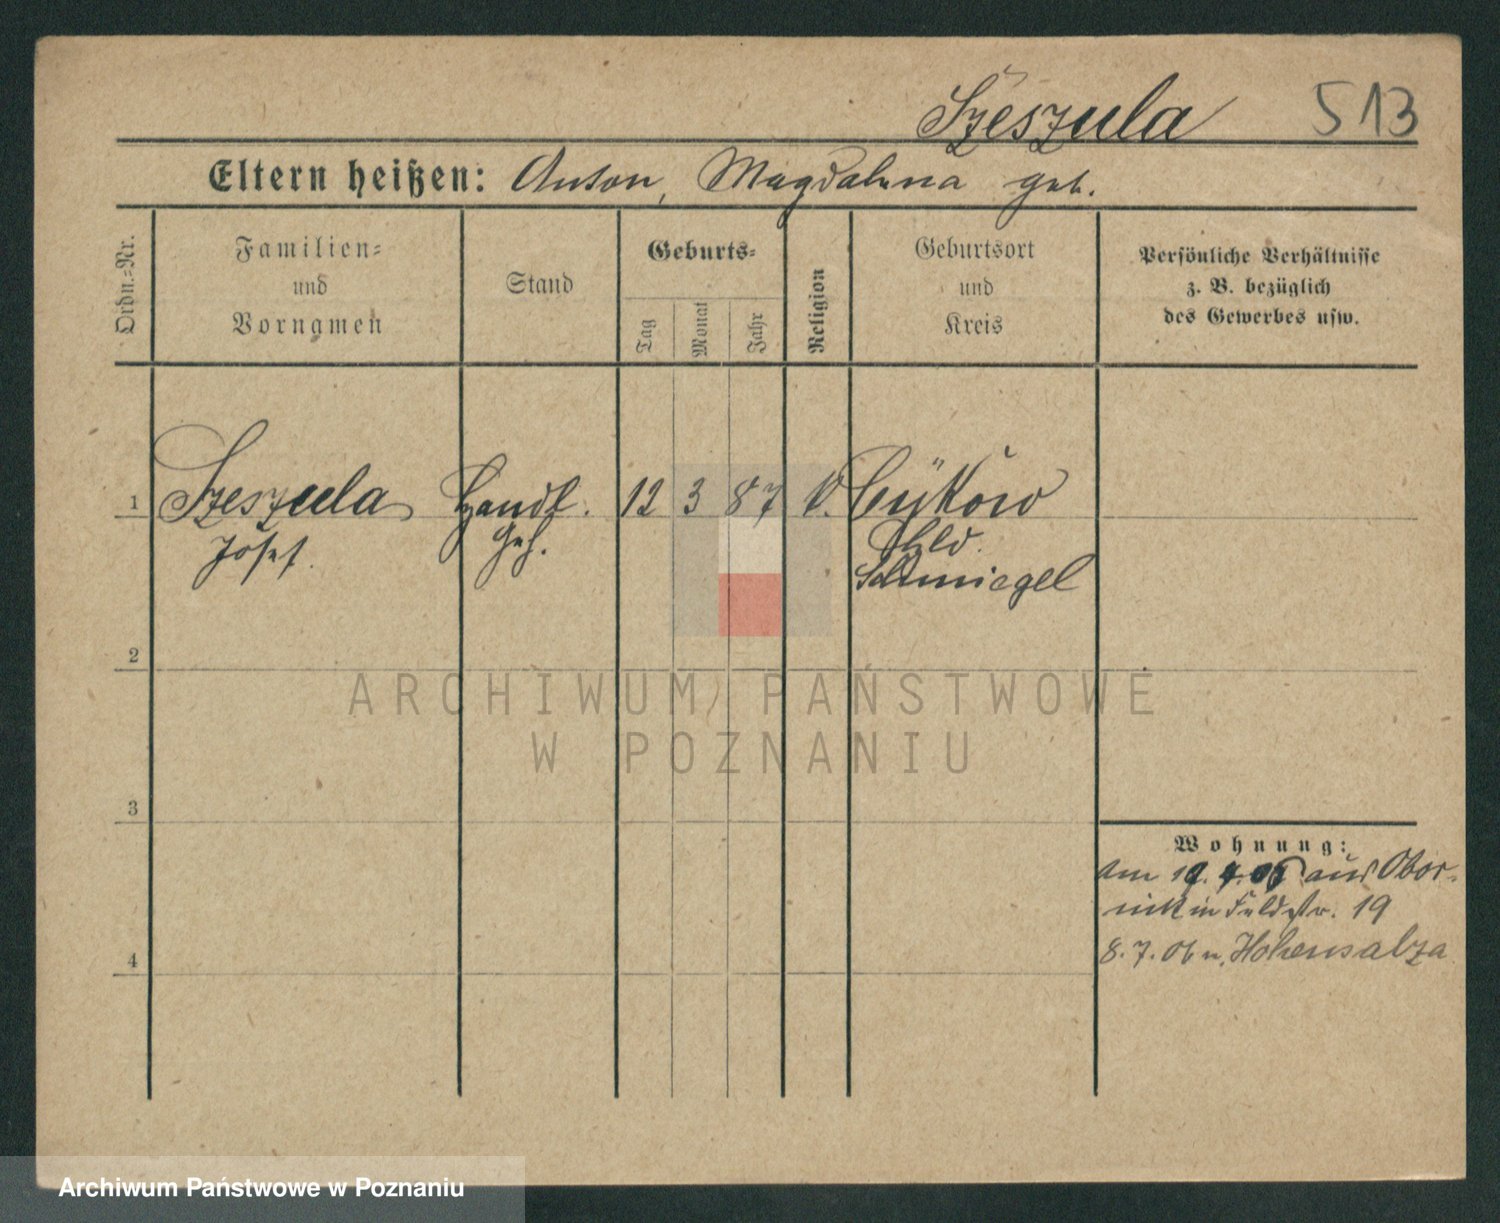 Szeszula 513
Eltern heißen: Anton, Magdalena geb.
Ordn.-Nr.
Familien-
und
Vornamen
Stand
Geburts-
Tag
Monat
Jahr
Religion
Geburtsort
und
Kreis
Persönliche Verhältnisse
z. B. bezüglich
des Gewerbes usw.
1 Szeszula Handl. 12 3 87
Josef. Geh.
Schmiegel
2
3
4
Wohnung:
am aus Obor-
nik in Feldstr. 19
8.7.06 n. Hohensalza
ARCHIWUM PAŃSTWOWE
W POZNANIU
Archiwum Państwowe w Poznaniu